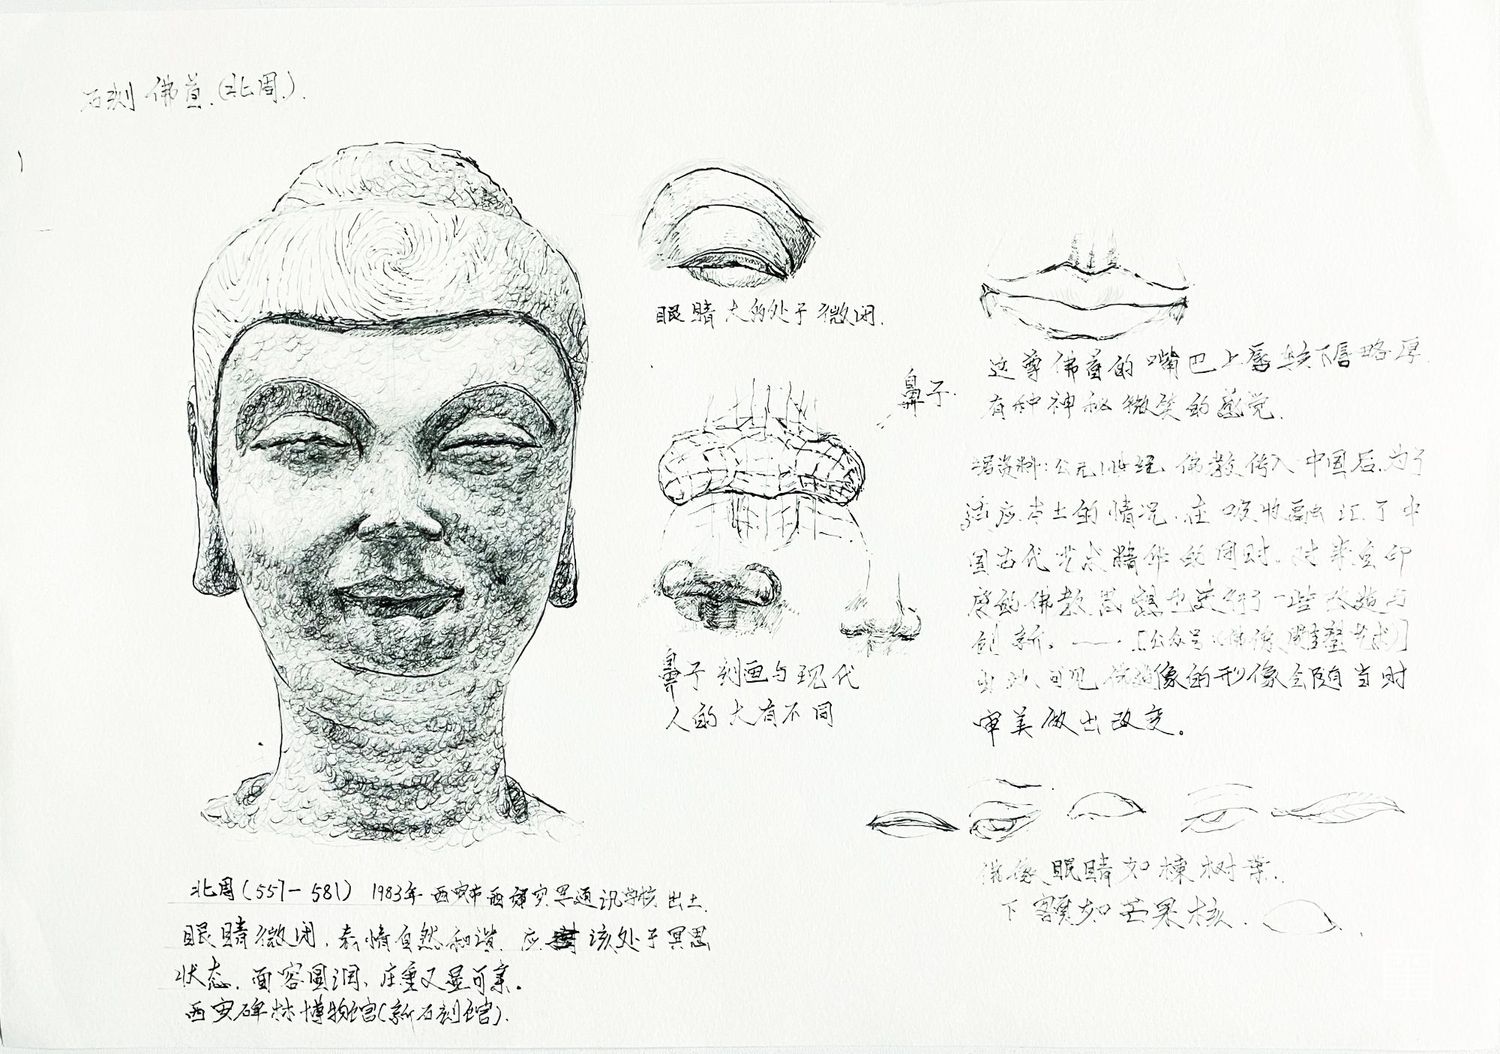 石刻佛首.(北周).
眼睛大的处于微闭.
鼻子.
鼻子刻画与现代
人的大有不同
这尊佛首的嘴巴上唇较下唇略厚
有种神秘微笑的感觉.
据资料:公元1世纪 佛教传入中国后.为了
适应本土的情况.在吸收融汇了中
国古代艺术精华的同时.对来自印
度的佛教思想也进行了一些改造与
创新。——.[公众号
由此可见 佛的像的形像会随当时
审美做出改变。
佛像眼睛如楝树叶.
下颚如芒果核.
北周(557-581) 1983年西安市西郊空军通讯学校出土.
眼睛微闭.表情自然和谐.应该处于冥思
状态.面容圆润、庄重又显可亲。
西安碑林博物馆(新石刻馆).